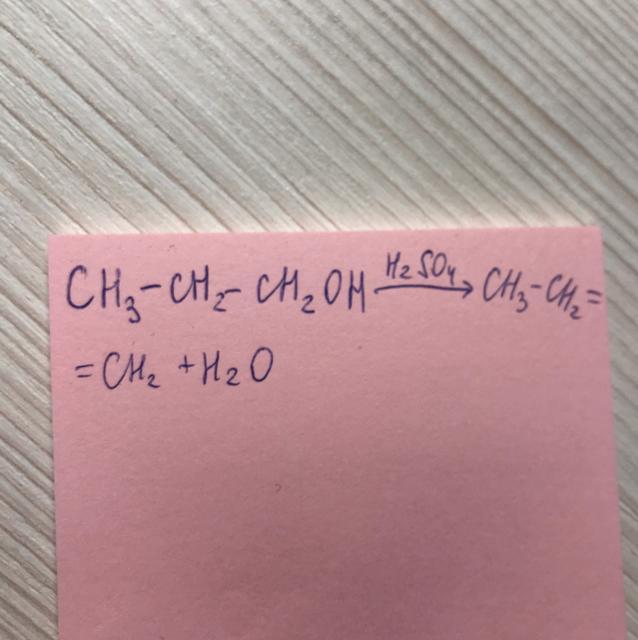 CH₃-CH₂-CH₂OH $\xrightarrow{H_2SO_4}$ CH₃-CH₂=
=CH₂ +H₂O